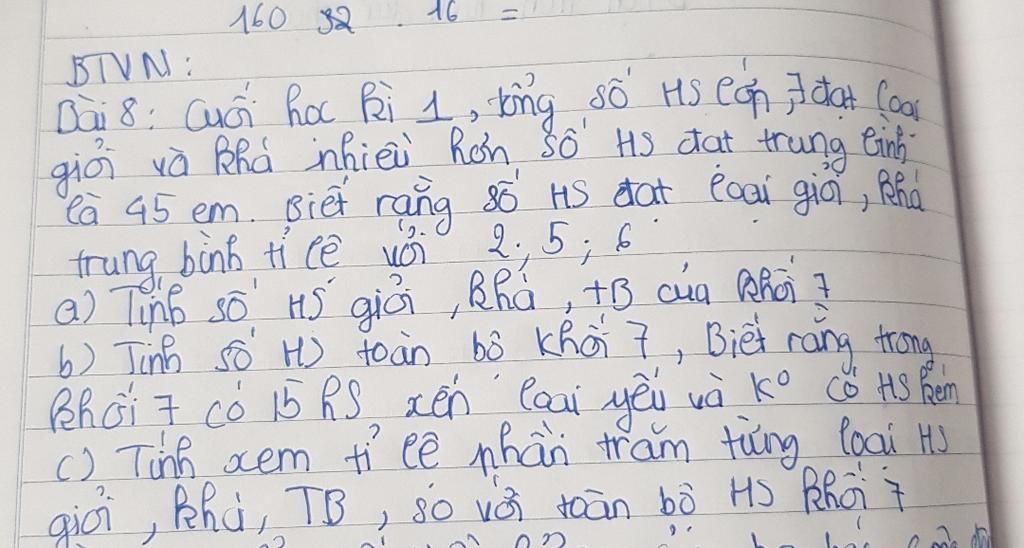 160 32 . 16 =
BTVN:
Bài 8: Cuối học kì 1, tổng số HS lớp 7 đạt loại
giỏi và khá nhiều hơn số HS đạt trung bình
là 45 em. Biết rằng số HS đạt loại giỏi, khá
trung bình tỉ lệ với 2; 5; 6
a) Tính số HS giỏi, khá, TB của khối 7
b) Tính số HS toàn bộ khối 7, Biết rằng trong
khối 7 có 15 hS xếp loại yếu và K° có HS kém
c) Tính xem tỉ lệ phần trăm từng loại HS
giỏi, khá, TB, so với toàn bộ HS khối 7